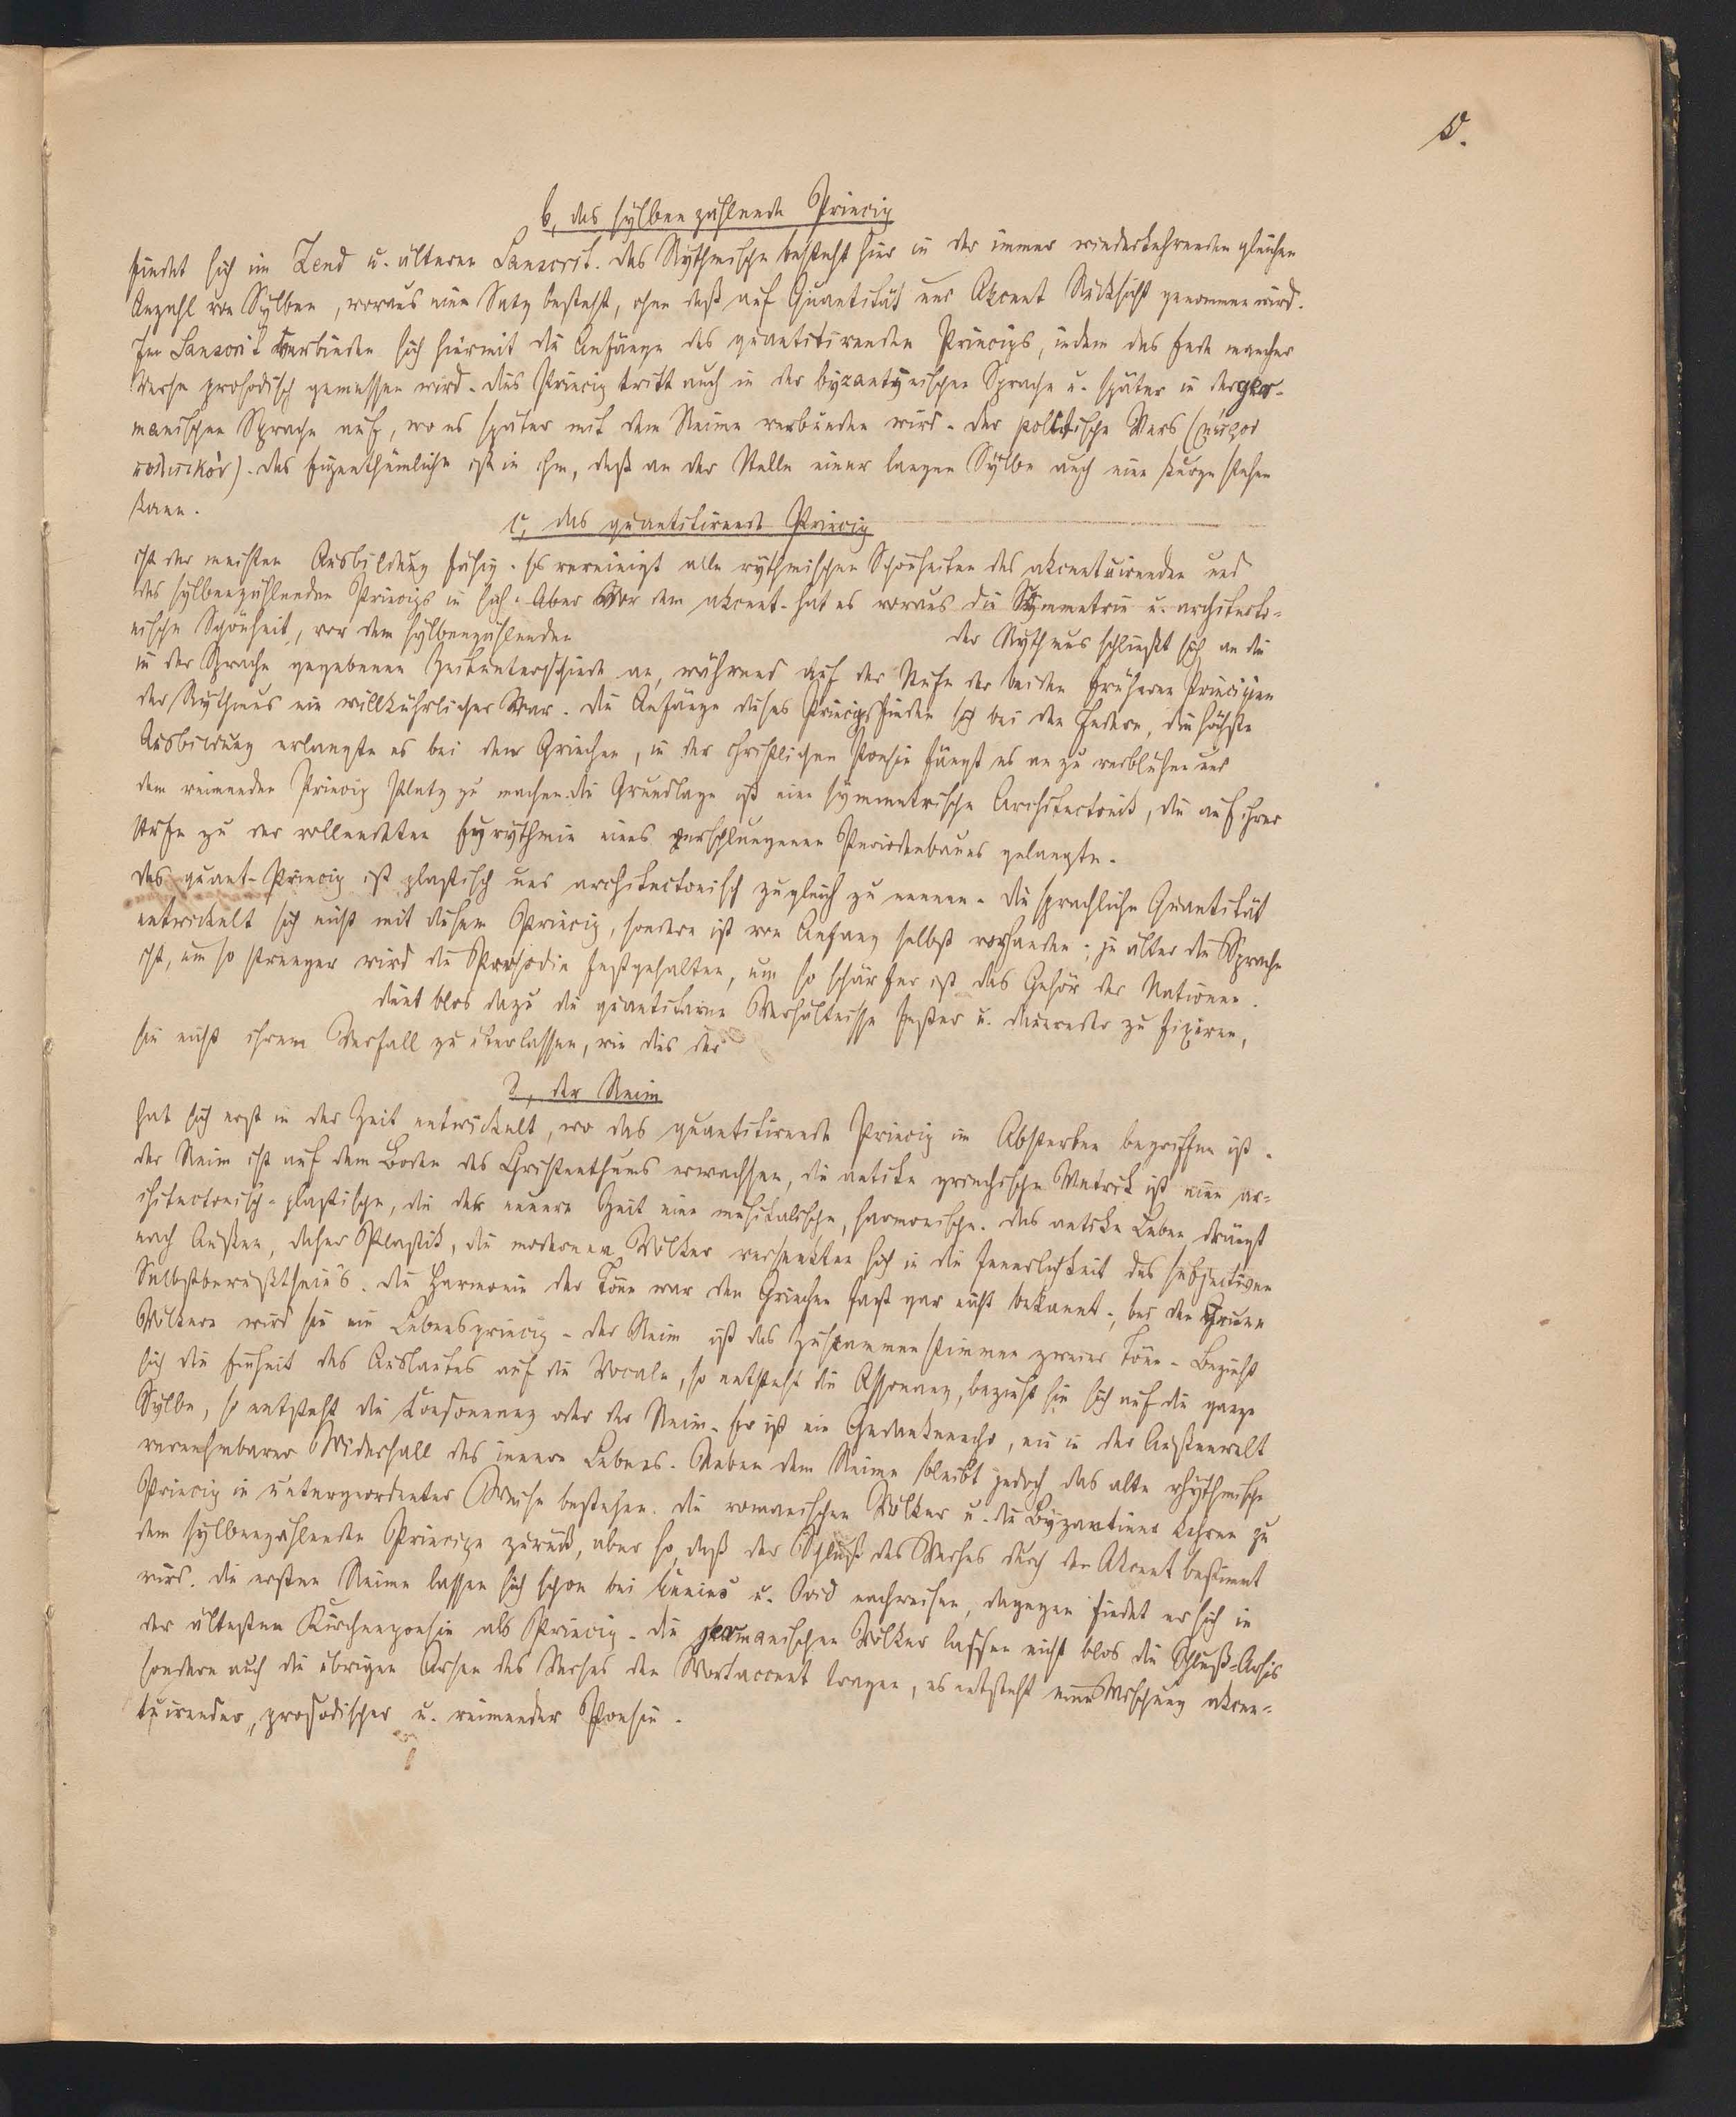 5.
b, das sylbenzählende Princip
findet sich im Zend u. älteren Sanscrit. Das Rythmische besteht hier in der immer wiederkehrenden gleichen
Anzahl von Sylben, woraus eine Satz besteht, ohne daß auf Quantität und Akcent Rücksicht genommen wird.
Im Sanscrit verbinden sich hiermit die Anfänge des quantitirenden Princips, indem das Ende mancher
Verse prosodisch gemessen wird. Dies Princip tritt auch in der byzantynischen Sprache u. später in der ger-
manischen Sprache auf, wo es später mit dem Reime verbunden wird. Der politische Vers (στίχοσ
πολιτικόσ). Das Eigenthümliche ist in ihm, daß an der Stelle einer langen Sylbe auch eine kurze stehen
kann.
c, das quantitirende Princip
ist der meisten Ausbildung fähig. Es vereinigt alle rythmischen Schönheiten des akcentuirenden und
des sylbenzählenden Princips in sich. Aber Vor dem akcent. hat es voraus die Symmetrie u. architekto-
nische Schönheit, vor dem sylbenzählenden der Rythmus schließt sich an die
in der Sprache gegebenen Zeitunterschiede an, während auf der Stufe der beiden früheren Principien
der Rythmus ein willkührlicher war. Die Anfänge dieses Princips finden sich bei den Indern, die höchste
Ausbildung erlangte es bei den Griechen, in der christlichen Poesie fängt es an zu verblühen und
dem reimenden Princip Platz zu machen. Die Grundlage ist eine symmetrische Architectonik, die auf ihrer
Stufe zu der vollendeten Eyrythmie eines verschlungenen Periodenbaues gelangte.
Das quant. Princip ist plastisch und architectonisch zugleich zu nennen. Die sprachliche Quantität
entwickelt sich nicht mit diesem Princip, sondern ist von Anfang selbst vorhanden; je älter die Sprache
ist, um so strenger wird die Prosodie festgehalten, um so schärfer ist das Gehör der Nationen.
dient blos dazu die quantitative Verhältnisse fester u. dauernder zu fixiren,
sie nicht ihrem Verfall zu überlassen, wie dies der
d, der Reim
hat sich erst in der Zeit entwickelt, wo das quantitirende Princip im Absterben begriffen ist.
Der Reim ist auf dem Boden des Christenthums erwachsen, die antike griechische Metrik ist eine ar-
chitectonisch-plastische, die der neuern Zeit eine musikalische, harmonische. Das antike Leben drängt
nach Außen, daher Plastik, die modernen Völker versenkten sich in die Innerlichkeit des subjectiven
Selbstbewußtseins. Die Harmonie der Töne war den Griechen fast gar nicht bekannt; bei den neuen
Völkern wird sie ein Lebensprincip. Der Reim ist das Zusammenstimmen zweier Töne. Bezieht
sich die Einheit des Auslautes auf die Vocale, so entsteht die Assonanz, bezieht sie sich auf die ganze
Sylbe, so entsteht die Consonanz oder der Reim. Er ist ein Gedankenecho, ein in der Außenwelt
vernehmbarer Widerhall des innern Lebens. Neben dem Reime bleibt jedoch das alte rhythmische
Princip in untergeordneter Weise bestehen. Die romanischen Völker u. die Byzantiner kehren zu
dem sylbenzählenden Principe zurück, aber so, daß der Schluß des Verses durch den Akcent bestimmt
wird. Die ersten Reime lassen sich schon bei Ennius u. Ovid nachweisen, dagegen findet er sich in
der ältesten Kirchenpoesie als Princip. Die germanischen Völker lassen nicht blos die Schluß-Arsis
sondern auch die übrigen Arsen des Verses den Wortaccent tragen, es entsteht eine Mischung akcen-
tuirender, prosodischer u. reimender Poesie.